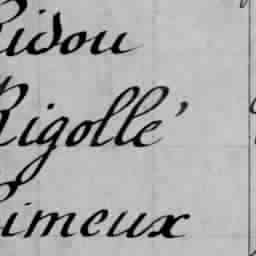 Ridou
Rigollé
Rimeux